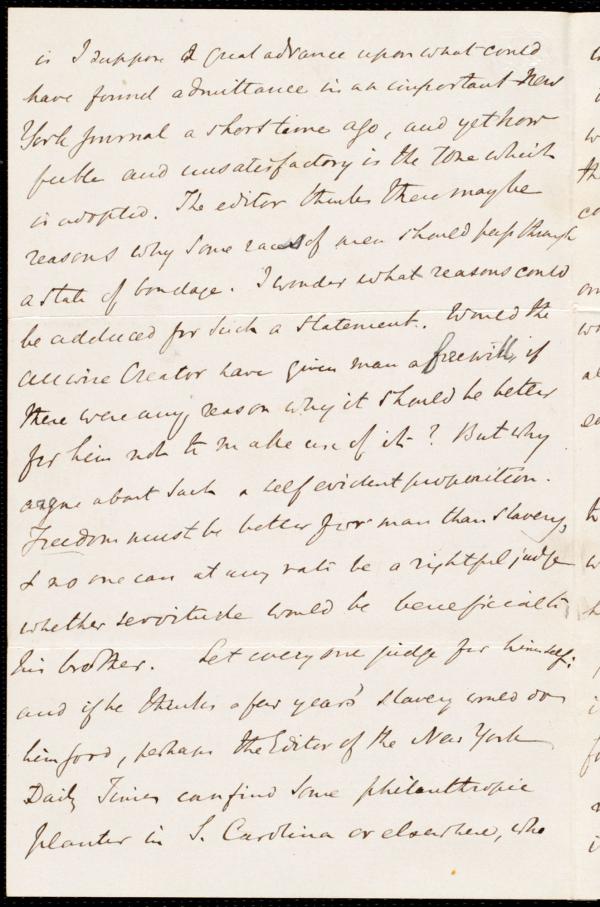 is I suppose a great advance upon what could
have found admittance in an important New
York Journal a short time ago, and yet how
feeble and unsatisfactory is the tone which
is adopted. The editor thinks there may be
reasons why some races of men should pass through
a state of bondage. I wonder what reasons could
be adduced for such a statement. Would the
allwise Creator have given man a free will, if
there were any reason why it should be better
for him not to make use of it? But why
argue about such a self evident proposition.
Freedom must be better for man than slavery,
& no one can at any rate be a rightful judge
whether servitude would be beneficial to
his brother. Let every one judge for himself:
and if he thinks a few years' slavery would do
him good, perhaps the Editor of the New York
Daily Times can find some philanthropic
planter in S. Carolina or elsewhere, who